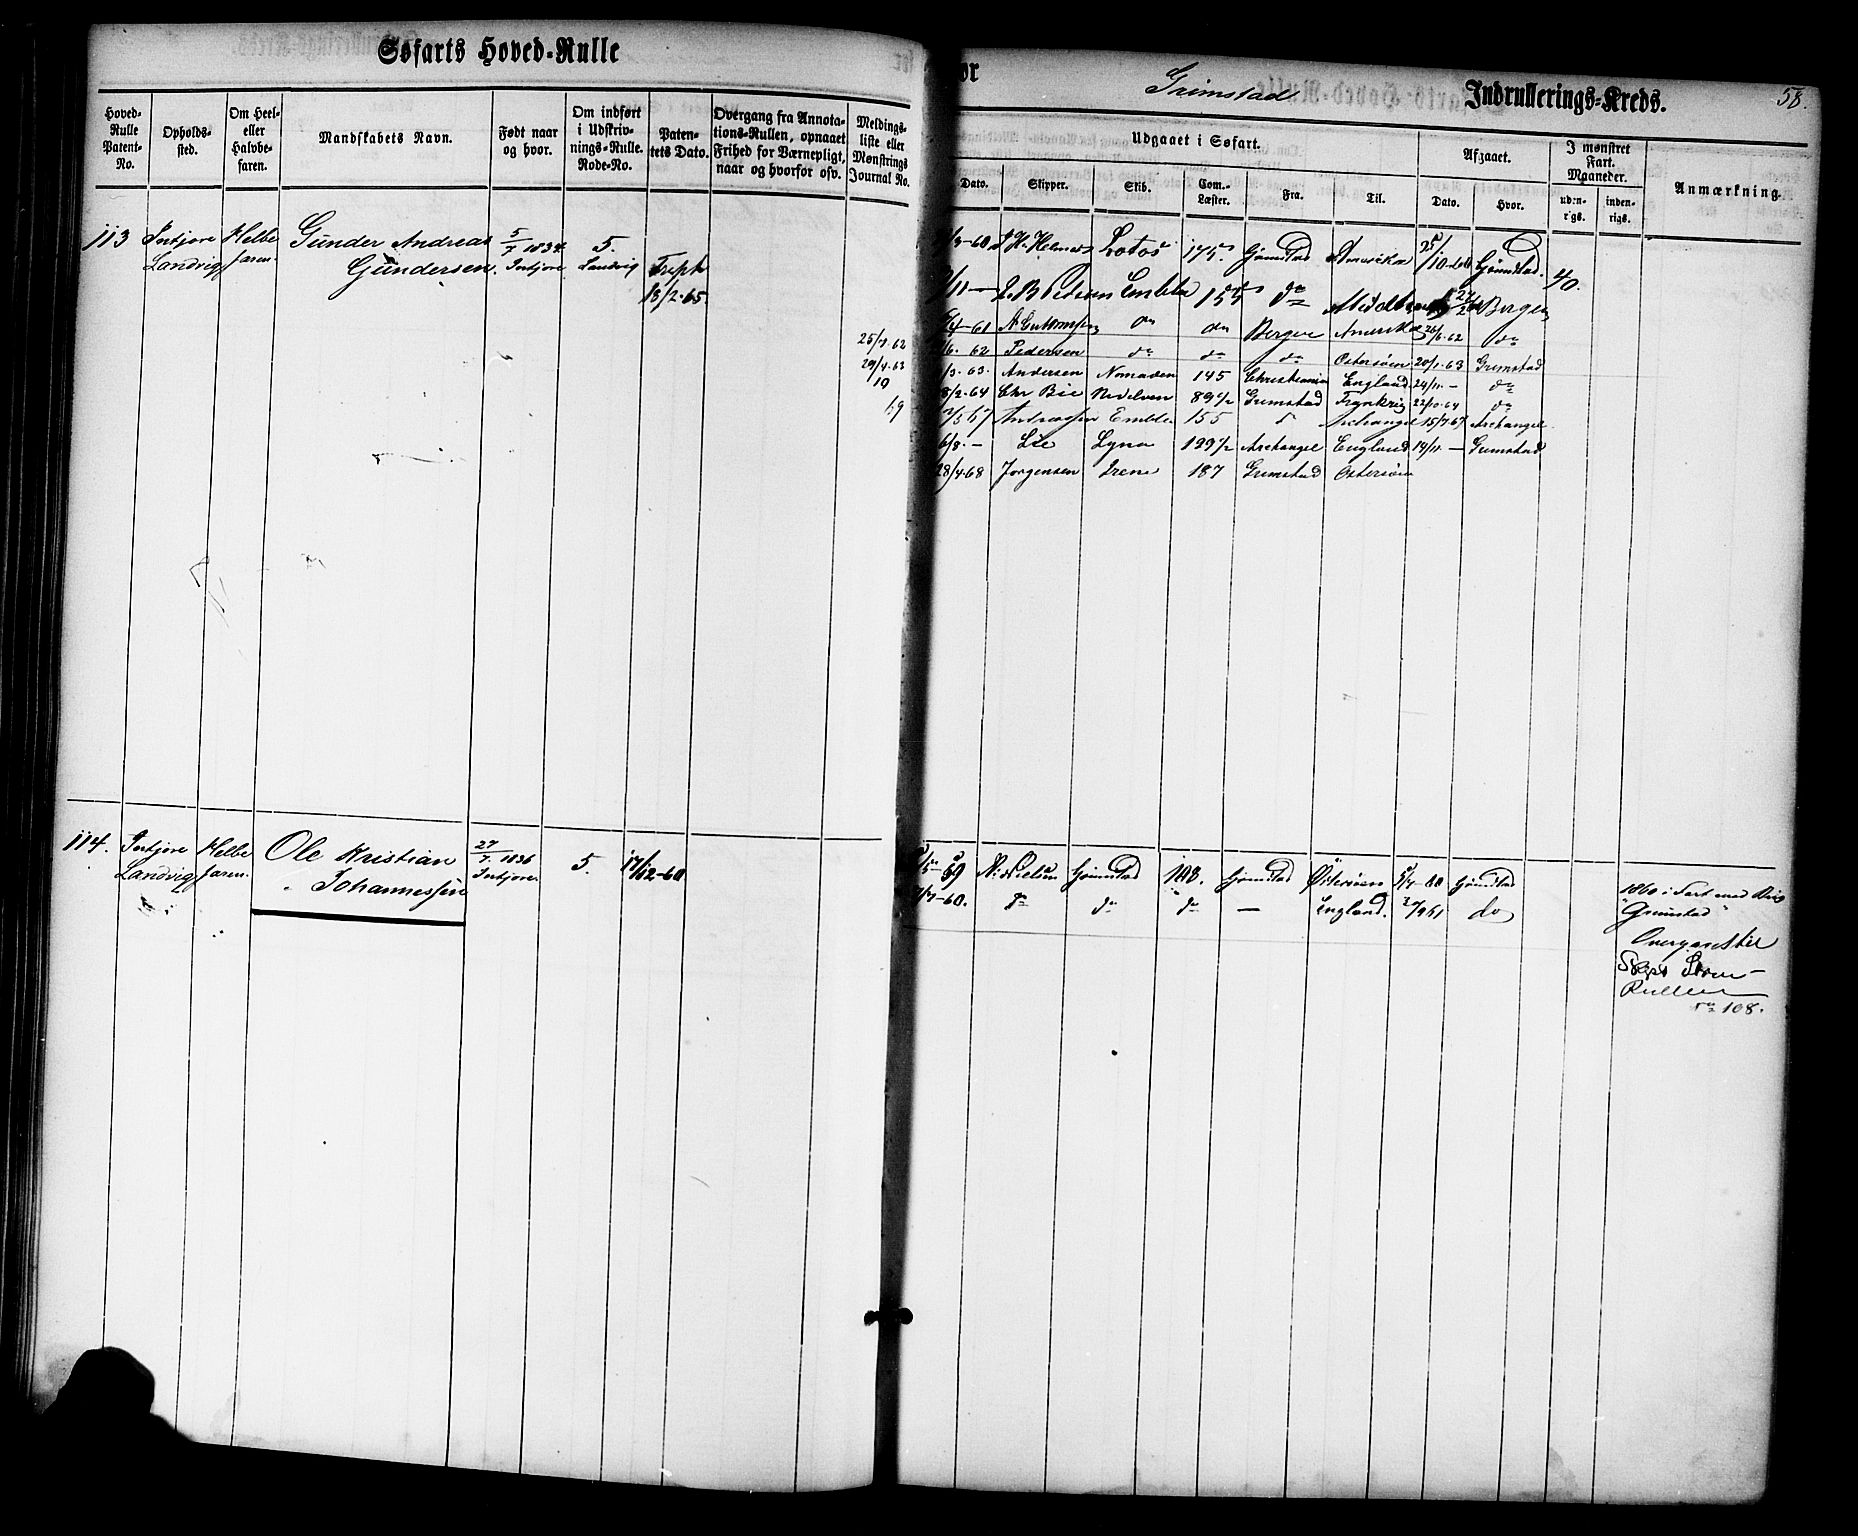 Søfarts Hoved-Rulle
for Grimstad Indrullerings-Kreds. 58.
Hoved-Rulle Patent-No.
Opholds-sted.
Om Heel- eller Halvbe-faren.
Mandskabets Navn.
Født naar og hvor.
Om indført i Udskriv-nings-Rulle. Rode-No.
Paten-tets Dato.
Overgang fra Annota-tions-Rullen, opnaaet Frihed for Værnepligt, naar og hvorfor osv.
Meldings-liste eller Mønstrings Journal No.
Udgaaet i Søfart.
Dato. Skipper. Skib. Com.-Læster. Fra. Til.
Afgaaet.
Dato. Hvor.
I mønstret Fart. Maaneder.
uden-rigs. inden-rigs.
Anmærkning.
113 Intjore Landvig
Helbe faren
Gunder Andreas
Gundersen
5/7 1834 Intjore
5. Landvig
18/2-65.
25/4 62
29/4 63
19
/3-60 Lotos 175. Grimstad Amerika 25/10-60 Grimstad. 40.
/11 — Pedersen Embla 155 do Bergen
/4-61 do do Bergen Amerika 26/6.62 do
/6.62 Pedersen do do do Østersøen 20/1.63 Grimstad
/3.63. Andersen Nomaden 145 Christiania England 24/11 — do
8/2.64 Chr Bie Nidelven 89 1/2 Grimstad Frankrig 22/10.64 do
/5 67 Embla 155 Archangel 15/7.67 Archangel
6/8.— Lie Lyna 199 1/2 Archangel England 19/11 — Grimstad
28/4-68 Jorgensen Irene 187 Grimstad Østersøen
114. Intjore Landvig
Helbe faren
Ole Kristian
Johannessen
27/7. 1836 Intjore
5.
17/12-60
/5-59 N. Nielsen Grimstad 108. Grimstad Østersøen /4-60 Grimstad
/7-60. do do do — England. do
1860 i Fart med Brig
"Grimstad"
Overgaaet til
Rullen
No 108.